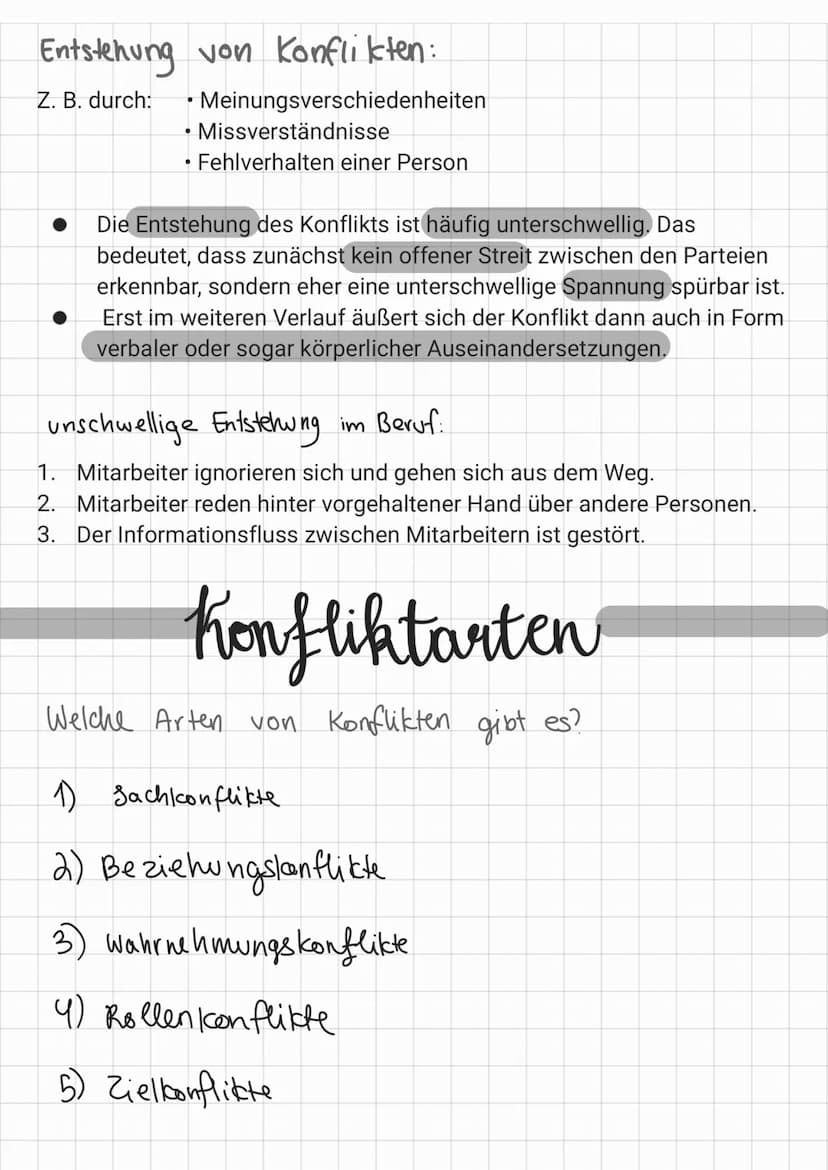 Entstehung von Konflikten:
Z. B. durch: • Meinungsverschiedenheiten
• Missverständnisse
• Fehlverhalten einer Person
● Die Entstehung des Konflikts ist häufig unterschwellig. Das
bedeutet, dass zunächst kein offener Streit zwischen den Parteien
erkennbar, sondern eher eine unterschwellige Spannung spürbar ist.
● Erst im weiteren Verlauf äußert sich der Konflikt dann auch in Form
verbaler oder sogar körperlicher Auseinandersetzungen.
unschwellige Entstehung im Beruf:
1. Mitarbeiter ignorieren sich und gehen sich aus dem Weg.
2. Mitarbeiter reden hinter vorgehaltener Hand über andere Personen.
3. Der Informationsfluss zwischen Mitarbeitern ist gestört.
Konfliktarten
Welche Arten von Konflikten gibt es?
1) Sachkonflikte
2) Beziehungskonflikte
3) Wahrnehmungskonflikte
4) Rollenkonflikte
5) Zielkonflikte